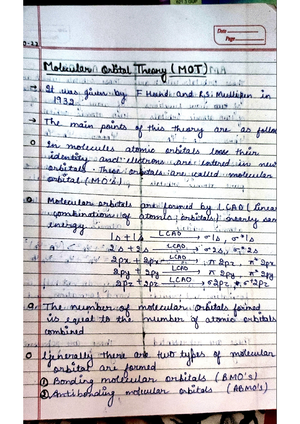 Date
Page
Molecular Orbital Theory (MOT)
→ It was given by F Hund and R.S. Mulliken in
1932
→ The main points of this theory are as follow
In molecules atomic orbitals lose their
identity and electrons are in new
orbitals. These orbitals are called molecular
orbital (MO's).
Molecular orbitals are formed by LCAO (Linear
combination of atomic orbitals) nearly same
energy
1s + 1s LCAO → σ1s, σ*1s
2s + 2s LCAO → σ2s, σ*2s
2px + 2px LCAO → π 2px, π* 2px
2py + 2py LCAO → π 2py, π* 2py
2pz + 2pz LCAO → σ2pz, σ*2pz
The number of molecular orbitals formed
is equal to the number of atomic orbitals
combined
Generally there are two types of molecular
orbital are formed
① Bonding molecular orbitals (BMO's)
② Antibonding molecular orbitals (ABMO's)